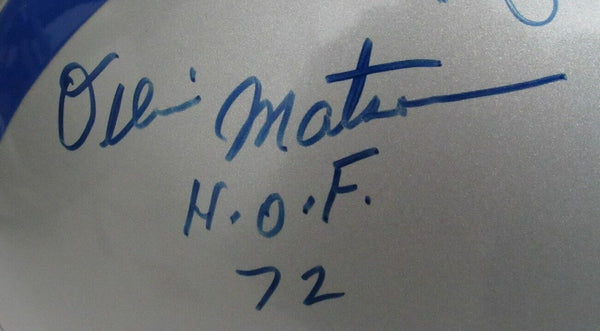 Ollie Matson
H.O.F.
72